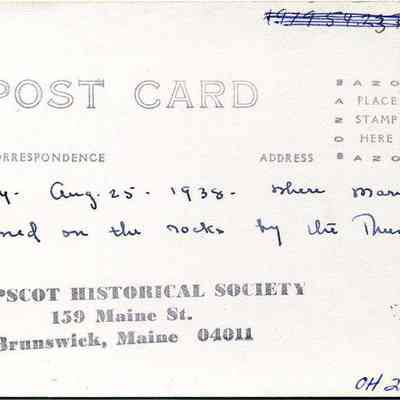 1979.59.23
POST CARD
AZO
PLACE
STAMP
HERE
AZO
ORRESPONDENCE
ADDRESS
y- Aug. 25 - 1938 - where mar
ned on the rocks by the
PSCOT HISTORICAL SOCIETY
159 Maine St.
Brunswick, Maine 04011
OH 2